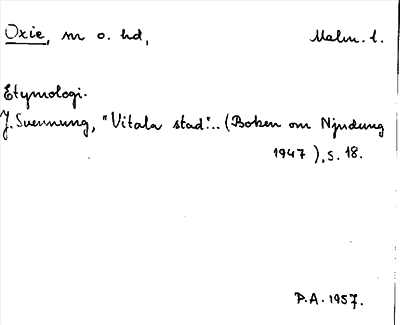 Oxie, m o. hd, Malm. l.
Etymologi.
J. Svennung, "Vitala stad"... (Boken om Njudung
1947), s. 18.
P.A. 1957.